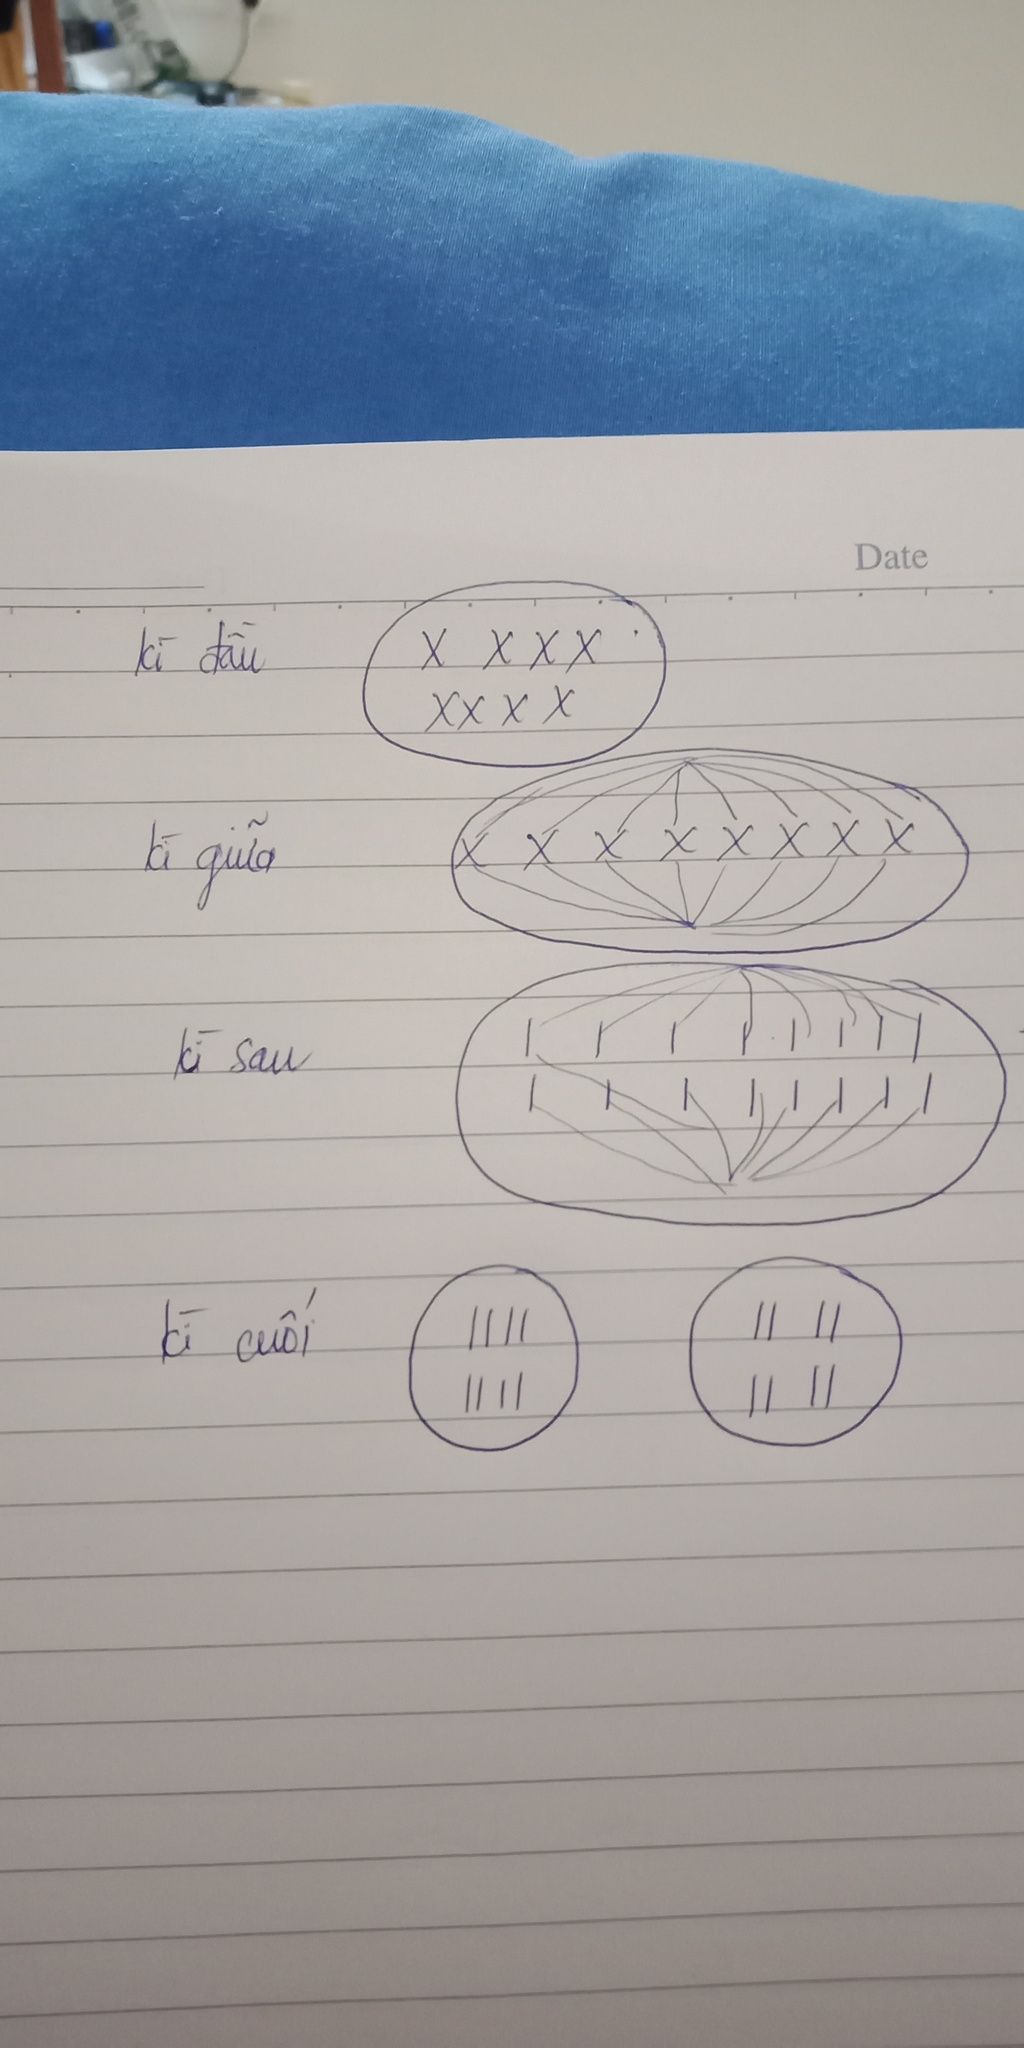 Date
kì đầu
X X X X
X X X X
kì giữa
X X X X X X X X
kì sau
| | | | | | | |
| | | | | | | |
kì cuối
|| || || ||
|| || || ||